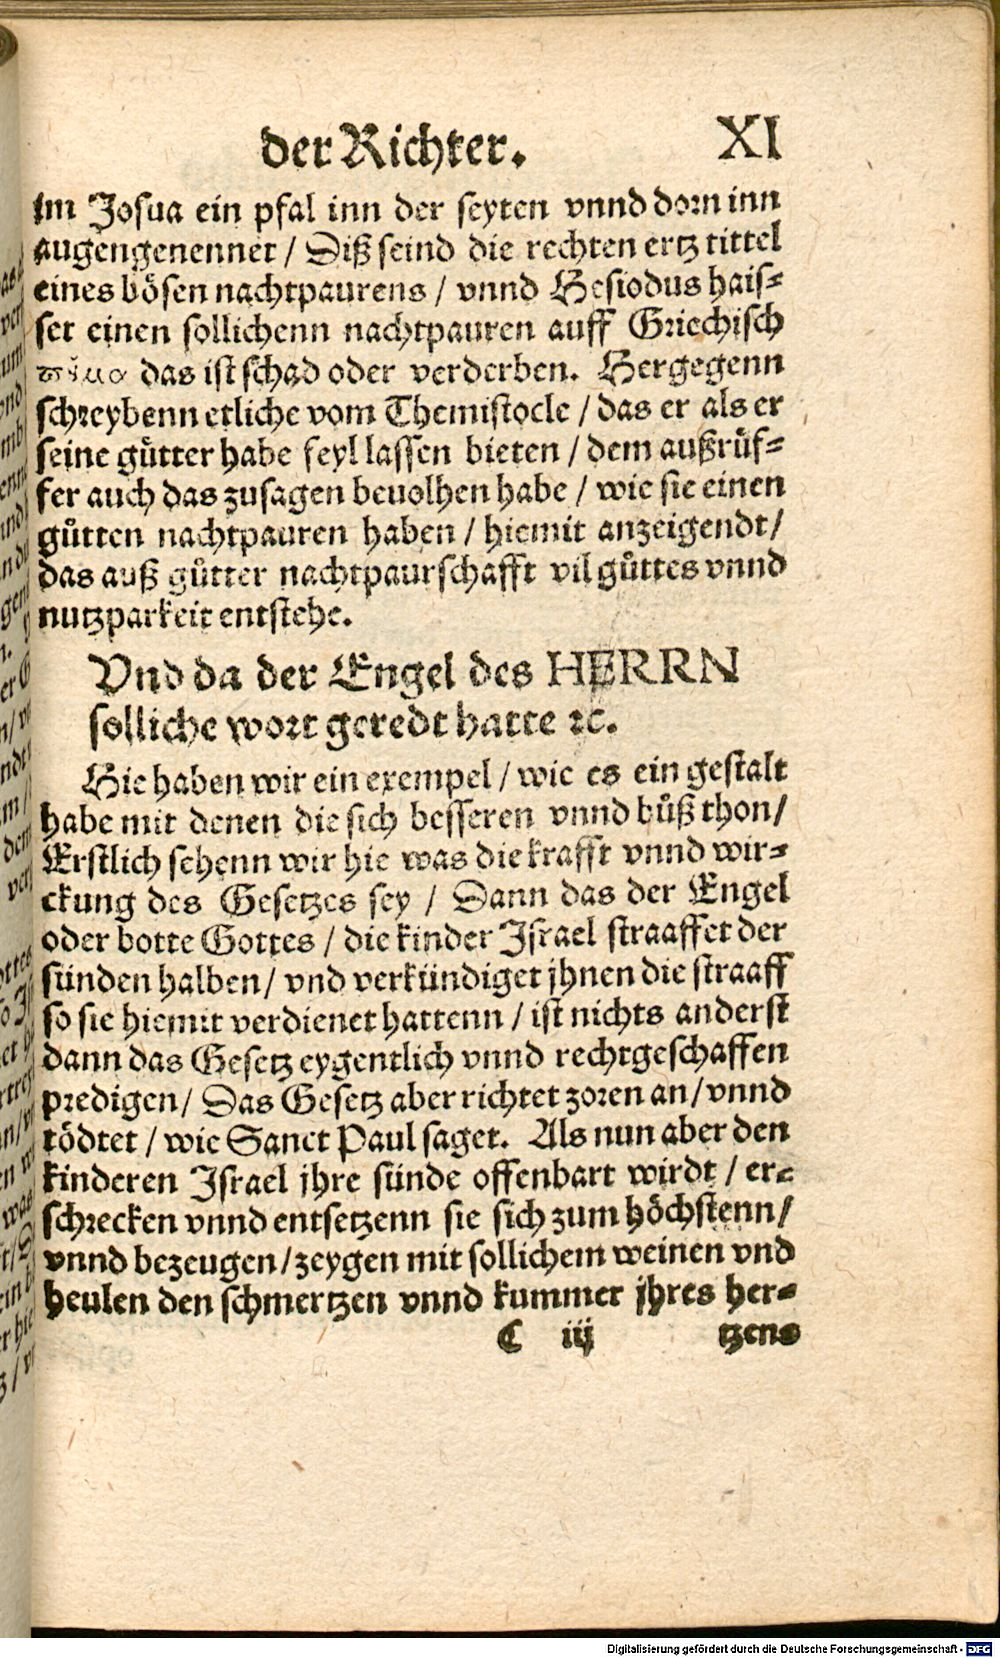 der Richter. XI
im Josua ein pfal inn der seyten vnnd dorn inn
augengenennet / Diß seind die rechten ertz tittel
eines bösen nachtpaurens / vnnd Hesiodus hais-
set einen sollichenn nachtpauren auff Griechisch
πῆμα das ist schad oder verderben. Hergegenn
schreybenn etliche vom Themistocle / das er als er
seine gütter habe feyl lassen bieten / dem außrüf-
fer auch das zusagen beuolhen habe / wie sie einen
gůtten nachtpauren haben / hiemit anzeigendt /
das auß gůtter nachtpaurschafft vil gůttes vnnd
nutzparkeit entstehe.
Vnd da der Engel des HERRN
solliche wort geredt hatte ꝛc.
Hie haben wir ein exempel / wie es ein gestalt
habe mit denen die sich besseren vnnd bůß thon /
Erstlich sehenn wir hie was die krafft vnnd wir-
ckung des Gesetzes sey / Dann das der Engel
oder botte Gottes / die kinder Israel straaffet der
sünden halben / vnd verkündiget jhnen die straaff
so sie hiemit verdienet hattenn / ist nichts anderst
dann das Gesetz eygentlich vnnd rechtgeschaffen
predigen / Das Gesetz aber richtet zoren an / vnnd
tödtet / wie Sanct Paul saget. Als nun aber den
kinderen Israel jhre sünde offenbart wirdt / er-
schrecken vnnd entsetzenn sie sich zum höchstenn /
vnnd bezeugen / zeygen mit sollichem weinen vnd
heulen den schmertzen vnnd kummer jhres her-
C iij tzens
Digitalisierung gefördert durch die Deutsche Forschungsgemeinschaft - DFG